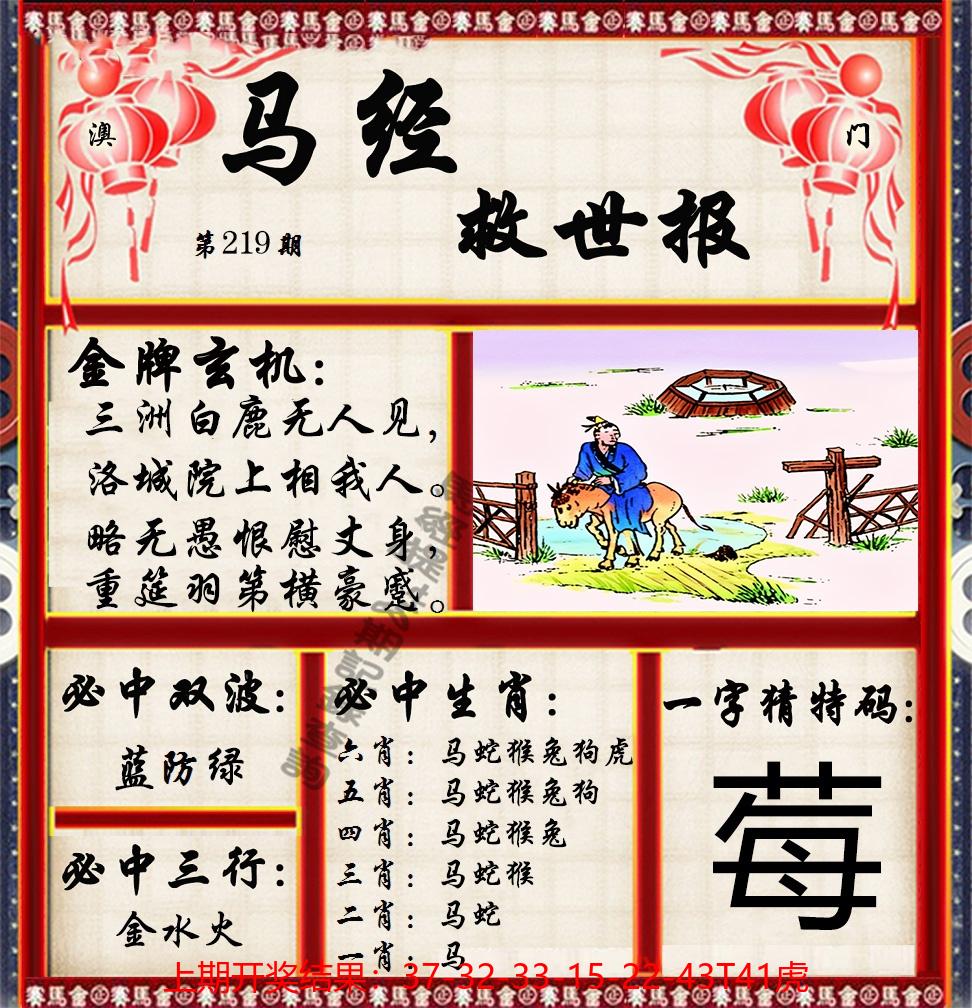 澳 门
马经
救世报
第219期
金牌玄机：
三洲白鹿无人见，
洛城院上相我人。
略无愚恨慰丈身，
重筵羽第横豪蹙。
必中双波：
蓝防绿
必中三行：
金水火
必中生肖：
六肖：马蛇猴兔狗虎
五肖：马蛇猴兔狗
四肖：马蛇猴兔
三肖：马蛇猴
二肖：马蛇
一肖：马
一字猜特码：
莓
上期开奖结果：37-32-33-15-22-43T41虎